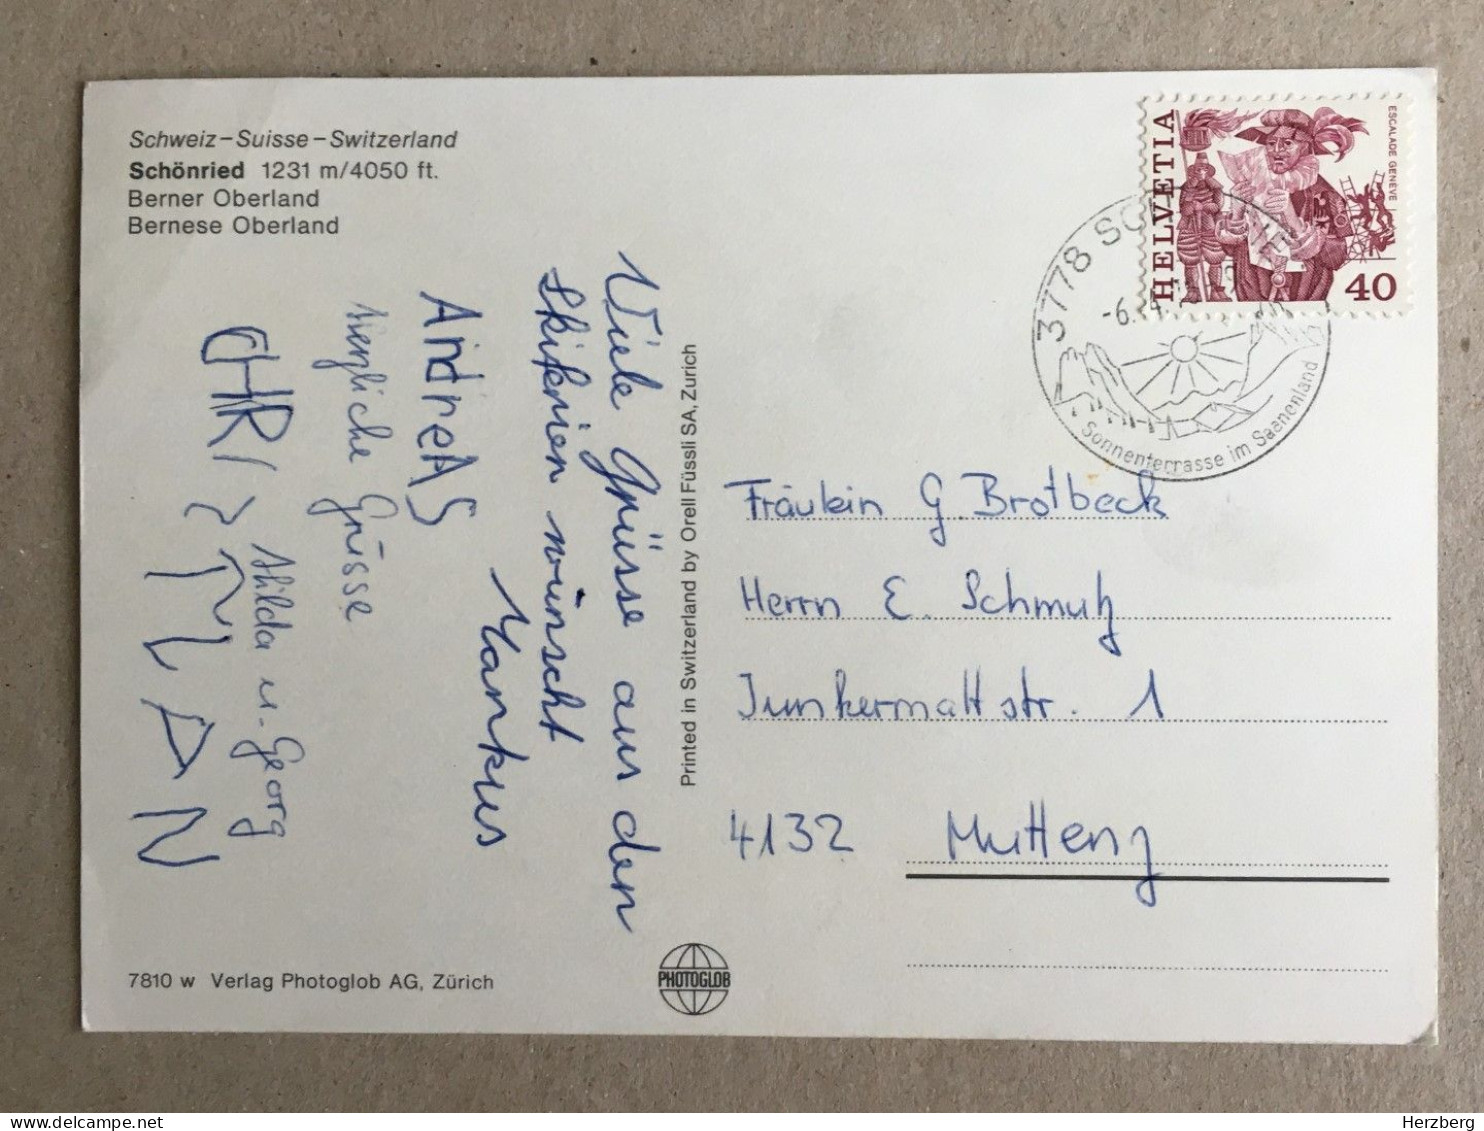 Schweiz–Suisse–Switzerland
Schönried 1231 m/4050 ft.
Berner Oberland
Bernese Oberland
Viele Grüsse aus den
Skiferien wünscht
Markus
AndreAS
Herzliche Grüsse
Hilda u. Georg
CHRISTIAN
7810 w Verlag Photoglob AG, Zürich
Printed in Switzerland by Orell Füssli SA, Zurich
PHOTOGLOB
HELVETIA
ESCALADE GENÈVE
40
3778
-6.
Sonnenterrasse im Saanenland
Fräulein G. Brotbeck
Herrn E. Schmutz
Junkermattstr. 1
4132 Muttenz
Herzberg